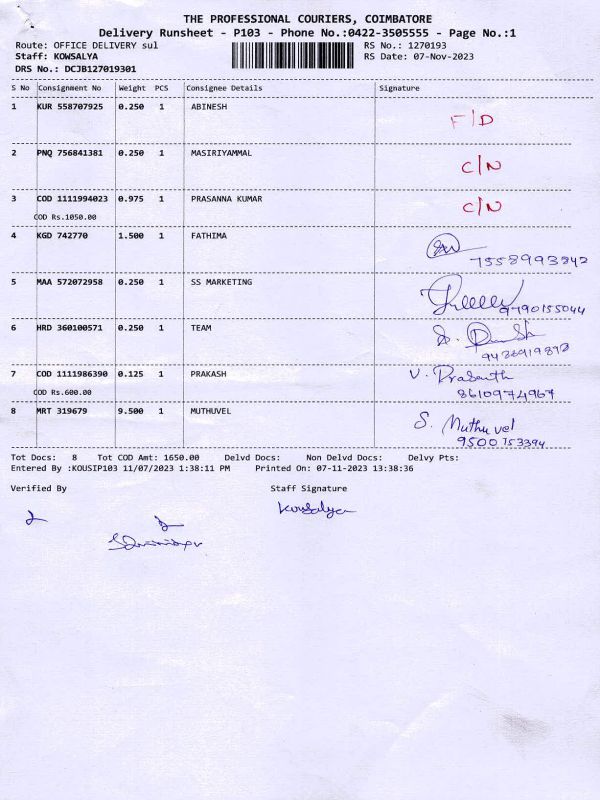 THE PROFESSIONAL COURIERS, COIMBATORE
Delivery Runsheet - P103 - Phone No.:0422-3505555 - Page No.:1
Route: OFFICE DELIVERY sul RS No.: 1270193
Staff: KOWSALYA RS Date: 07-Nov-2023
DRS No.: DCJB127019301
S No Consignment No Weight PCS Consignee Details Signature
1 KUR 558707925 0.250 1 ABINESH F/D
2 PNQ 756841381 0.250 1 MASIRIYAMMAL C/N
3 COD 1111994023 0.975 1 PRASANNA KUMAR C/N
COD Rs.1050.00
4 KGD 742770 1.500 1 FATHIMA
7558993842
5 MAA 572072958 0.250 1 SS MARKETING
9790155044
6 HRD 360100571 0.250 1 TEAM
7 COD 1111986390 0.125 1 PRAKASH V. Prasanth
COD Rs.600.00 8610974967
8 MRT 319679 9.500 1 MUTHUVEL S. Muthuvel
9500753394
Tot Docs: 8 Tot COD Amt: 1650.00 Delvd Docs: Non Delvd Docs: Delvy Pts:
Entered By :KOUSIP103 11/07/2023 1:38:11 PM Printed On: 07-11-2023 13:38:36
Verified By Staff Signature
Kowsalya